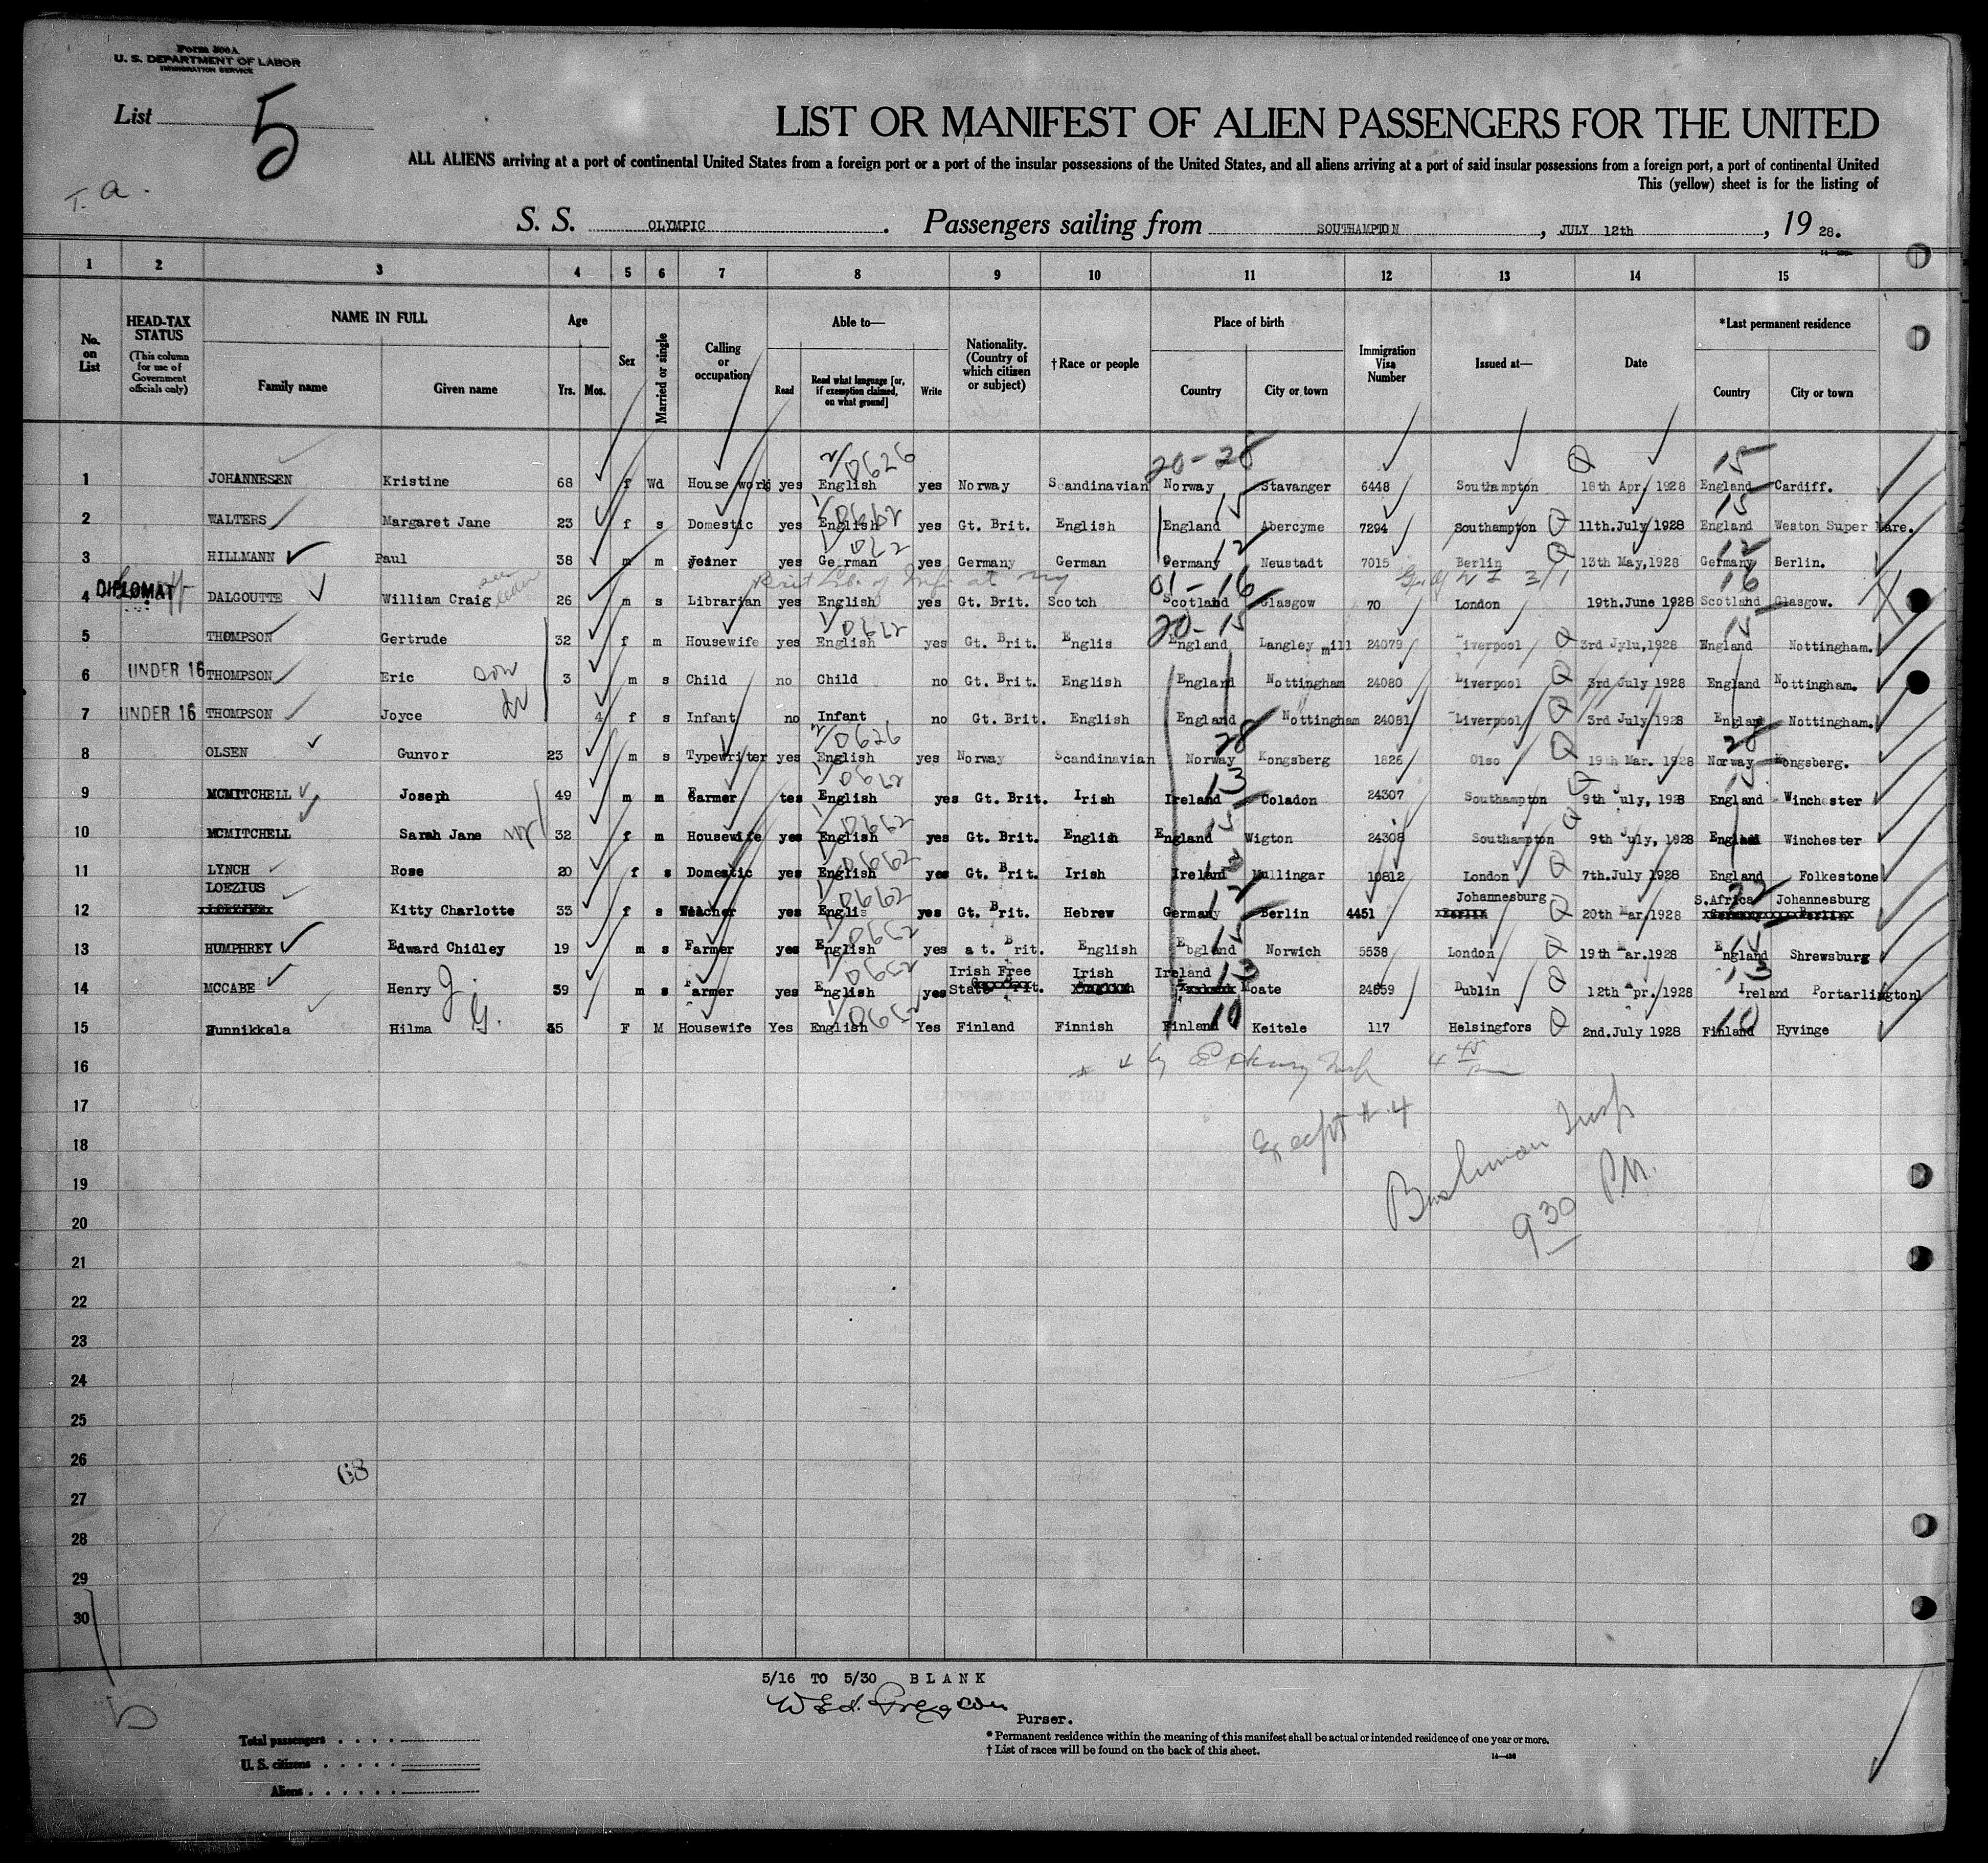 Form 500A
U. S. DEPARTMENT OF LABOR
IMMIGRATION SERVICE
List 5
T. a.
LIST OR MANIFEST OF ALIEN PASSENGERS FOR THE UNITED
ALL ALIENS arriving at a port of continental United States from a foreign port or a port of the insular possessions of the United States, and all aliens arriving at a port of said insular possessions from a foreign port, a port of continental United
This (yellow) sheet is for the listing of
S. S. OLYMPIC. Passengers sailing from SOUTHAMPTON, JULY 12th, 19 28.
1 2 3 4 5 6 7 8 9 10 11 12 13 14 15
No. on List
HEAD-TAX STATUS (This column for use of Government officials only)
NAME IN FULL Family name Given name
Age Yrs. Mos.
Sex
Married or single
Calling or occupation
Able to— Read Read what language [or, if exemption claimed, on what ground] Write
Nationality. (Country of which citizen or subject)
†Race or people
Place of birth Country City or town
Immigration Visa Number
Issued at—
Date
*Last permanent residence Country City or town
2/0626 20-28 15
1 JOHANNESEN Kristine 68 f Wd House work yes English yes Norway Scandinavian Norway Stavanger 6448 Southampton 18th Apr, 1928 England Cardiff.
0662 15 15
2 WALTERS Margaret Jane 23 f s Domestic yes English yes Gt. Brit. English England Abercyme 7294 Southampton 11th.July 1928 England Weston Super Mare.
12 12
3 HILLMANN Paul 38 m m Joiner yes German yes Germany German Germany Neustadt 7015 Berlin 13th May,1928 Germany Berlin.
01-16 16
4 DIPLOMAT DALGOUTTE William Craig 26 m s Librarian yes English yes Gt. Brit. Scotch Scotland Glasgow 70 London 19th.June 1928 Scotland Glasgow.
20-15 15
5 THOMPSON Gertrude 32 f m Housewife yes English yes Gt. Brit. Englis England Langley mill 24079 Liverpool 3rd Jylu,1928 England Nottingham.
6 UNDER 16 THOMPSON Eric son 3 m s Child no Child no Gt. Brit. English England Nottingham 24080 Liverpool 3rd July 1928 England Nottingham.
7 UNDER 16 THOMPSON Joyce 4 f s Infant no Infant no Gt. Brit. English England Nottingham 24081 Liverpool 3rd July 1928 England Nottingham.
2/0626 28 28
8 OLSEN Gunvor 23 m s Typewriter yes English yes Norway Scandinavian Norway Kongsberg 1826 Olso 19th Mar. 1928 Norway Kongsberg.
13 15
9 MCMITCHELL Joseph 49 m m Farmer tes English yes Gt. Brit. Irish Ireland Coladon 24307 Southampton 9th July, 1928 England Winchester
0662 15
10 MCMITCHELL Sarah Jane 32 f m Housewife yes English yes Gt. Brit. English England Wigton 24308 Southampton 9th July, 1928 England Winchester
0662 13
11 LYNCH Rose 20 f s Domestic yes English yes Gt. Brit. Irish Ireland Mullingar 10812 London 7th.July 1928 England Folkestone
LOEZIUS 0662 12 Johannesburg 22 S.Africa Johannesburg
12 Kitty Charlotte 33 f s yes Englis yes Gt. Brit. Hebrew Germany Berlin 4451 20th Mar,1928
0662 15
13 HUMPHREY Edward Chidley 19 m s Farmer yes English yes at. Brit. English Ebgland Norwich 5538 London 19th Mar.1928 England Shrewsburg
0662 Irish Free Irish Ireland 13 13
14 MCCABE Henry 39 m s Farmer yes English yes State Moate 24659 Dublin 12th Apr. 1928 Ireland Portarlington
0662 10 10
15 Hunnikkala Hilma 35 F M Housewife Yes English Yes Finland Finnish Finland Keitele 117 Helsingfors 2nd.July 1928 Finland Hyvinge
16
17
Except # 4
18
Bushman Insp
19
9 30 P.M.
20
21
22
23
24
25
26
68
27
28
29
30
5/16 TO 5/30 BLANK
Purser.
5
Total passengers
U. S. citizens
Aliens
* Permanent residence within the meaning of this manifest shall be actual or intended residence of one year or more.
† List of races will be found on the back of this sheet.